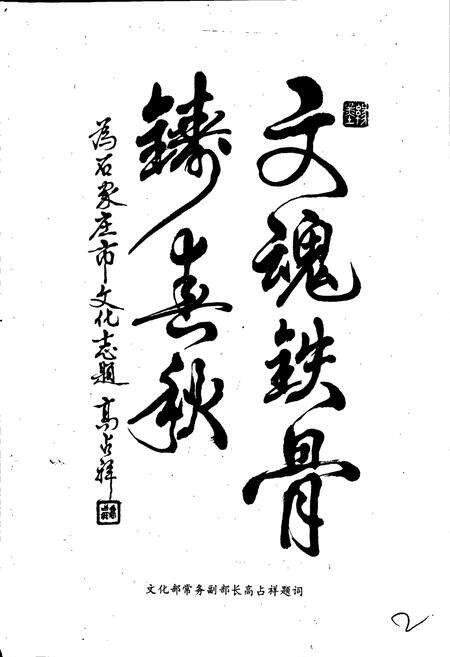 文魂铁骨
鑄春秋
為石家庄市文化志题
高占祥
文化部常务副部长高占祥题词
2